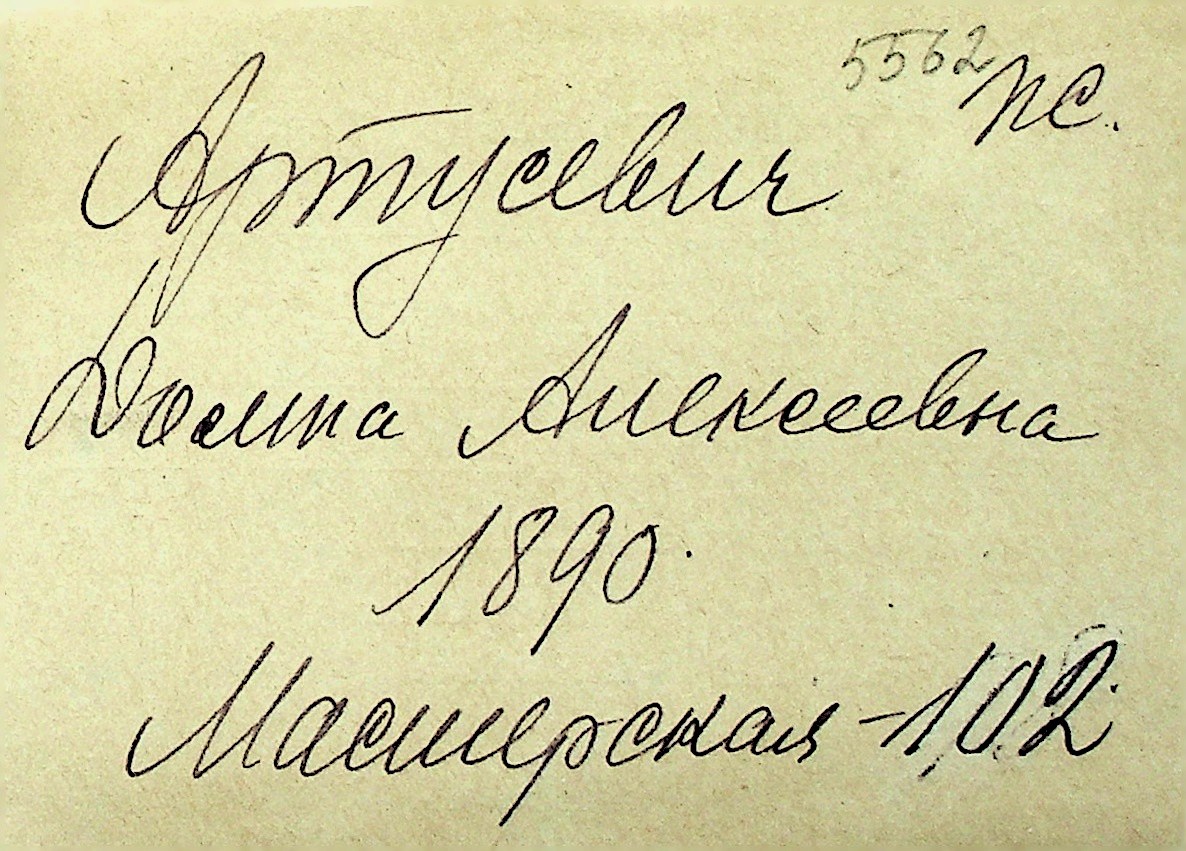 5562 пс.
Артусевич
Домна Алексеевна
1890.
Мастерская - 102